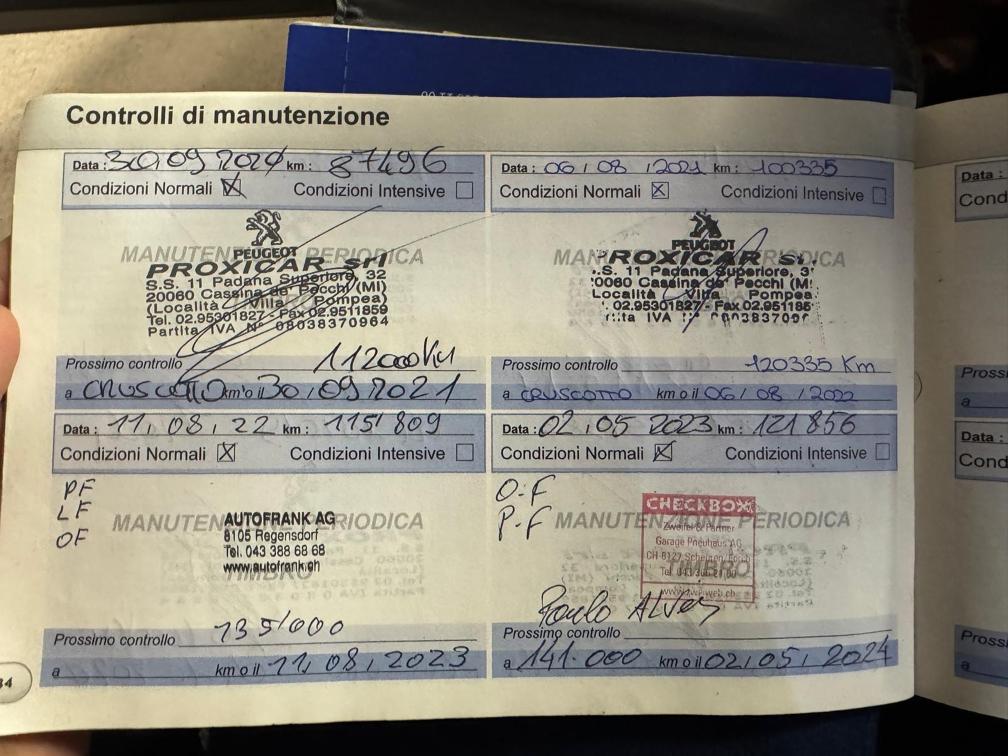 Controlli di manutenzione
Data : 30,09,2020 km : 87496
Condizioni Normali X Condizioni Intensive
MANUTENZIONE PERIODICA
PEUGEOT
PROXICAR srl
S.S. 11 Padana Superiore, 32
20060 Cassina de' Pecchi (MI)
(Località Villa Pompea)
Tel. 02.95301827 - Fax 02.9511859
Partita IVA N° 08038370964
Prossimo controllo 112000 KM
a CRUSCOTTO km o il 30,09,2021
Data : 06/08/2021 km : 100335
Condizioni Normali X Condizioni Intensive
MANUTENZIONE PERIODICA
PEUGEOT
PROXICAR
S.S. 11 Padana Superiore, 3
0060 Cassina de' Pecchi (M
Località Villa Pompea
02.95301827 - Fax 02.951185
IVA N° 0803837096
Prossimo controllo 120335 Km
a CRUSCOTTO km o il 06/08/2022
Data : 11,08,22 km : 115'809
Condizioni Normali X Condizioni Intensive
PF
LF
OF
MANUTENZIONE PERIODICA
AUTOFRANK AG
8105 Regensdorf
Tel. 043 388 68 68
www.autofrank.ch
TIMBRO
Prossimo controllo 135'000
a km o il 11,08,2023
Data : 02,05 2023 km : 121856
Condizioni Normali X Condizioni Intensive
O.F
P.F
MANUTENZIONE PERIODICA
CHECKBOX
Zweifel & Partner
Garage Pneuhaus AG
CH-8127 Scheuren/Forch
TIMBRO
Paulo Alves
Prossimo controllo
a 141.000 km o il 02,05,2024
34
Data :
Cond
Pross
a
Data :
Cond
Pross
a